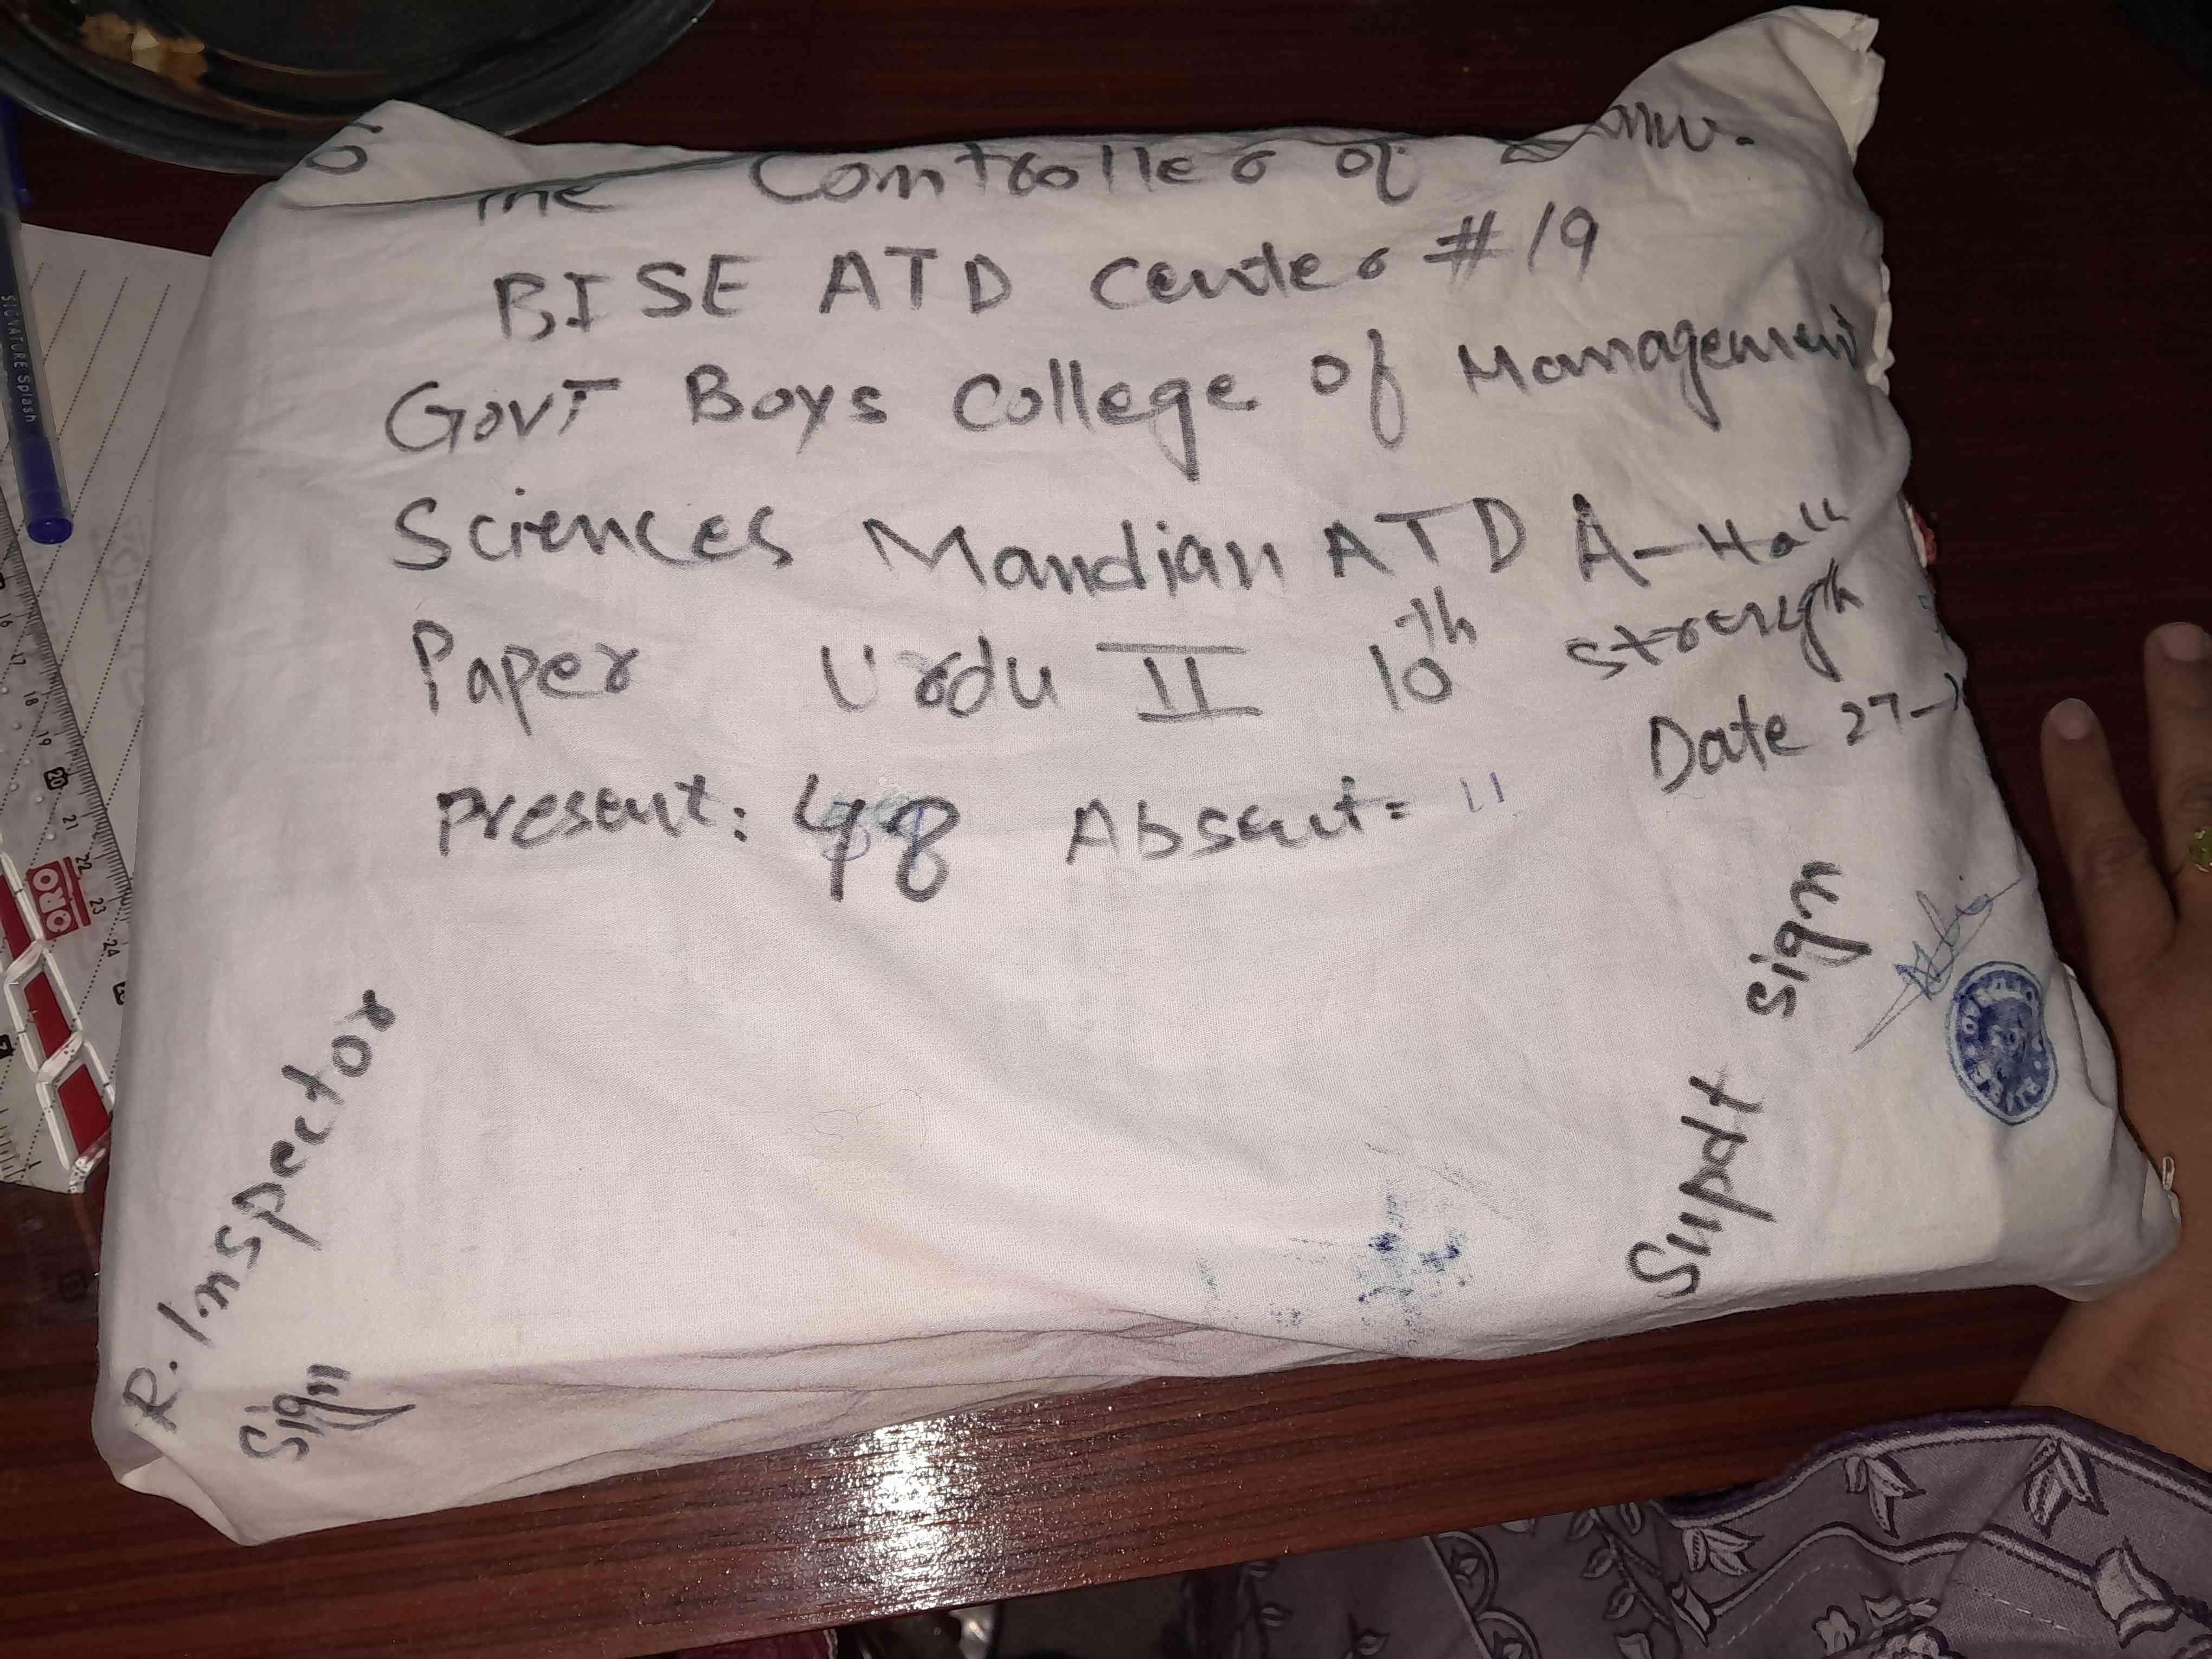 The Controller of
BISE ATD Center #19
Govt Boys College of Management
Sciences Mandian ATD A-Hall
Paper Urdu II 10th Strength
Date 27-
Present: 48 Absent= 11
R. Inspector
Sign
Supdt Sign
SIGNATURE Splash
ORO
16
17
18
19
20
21
22
23
24